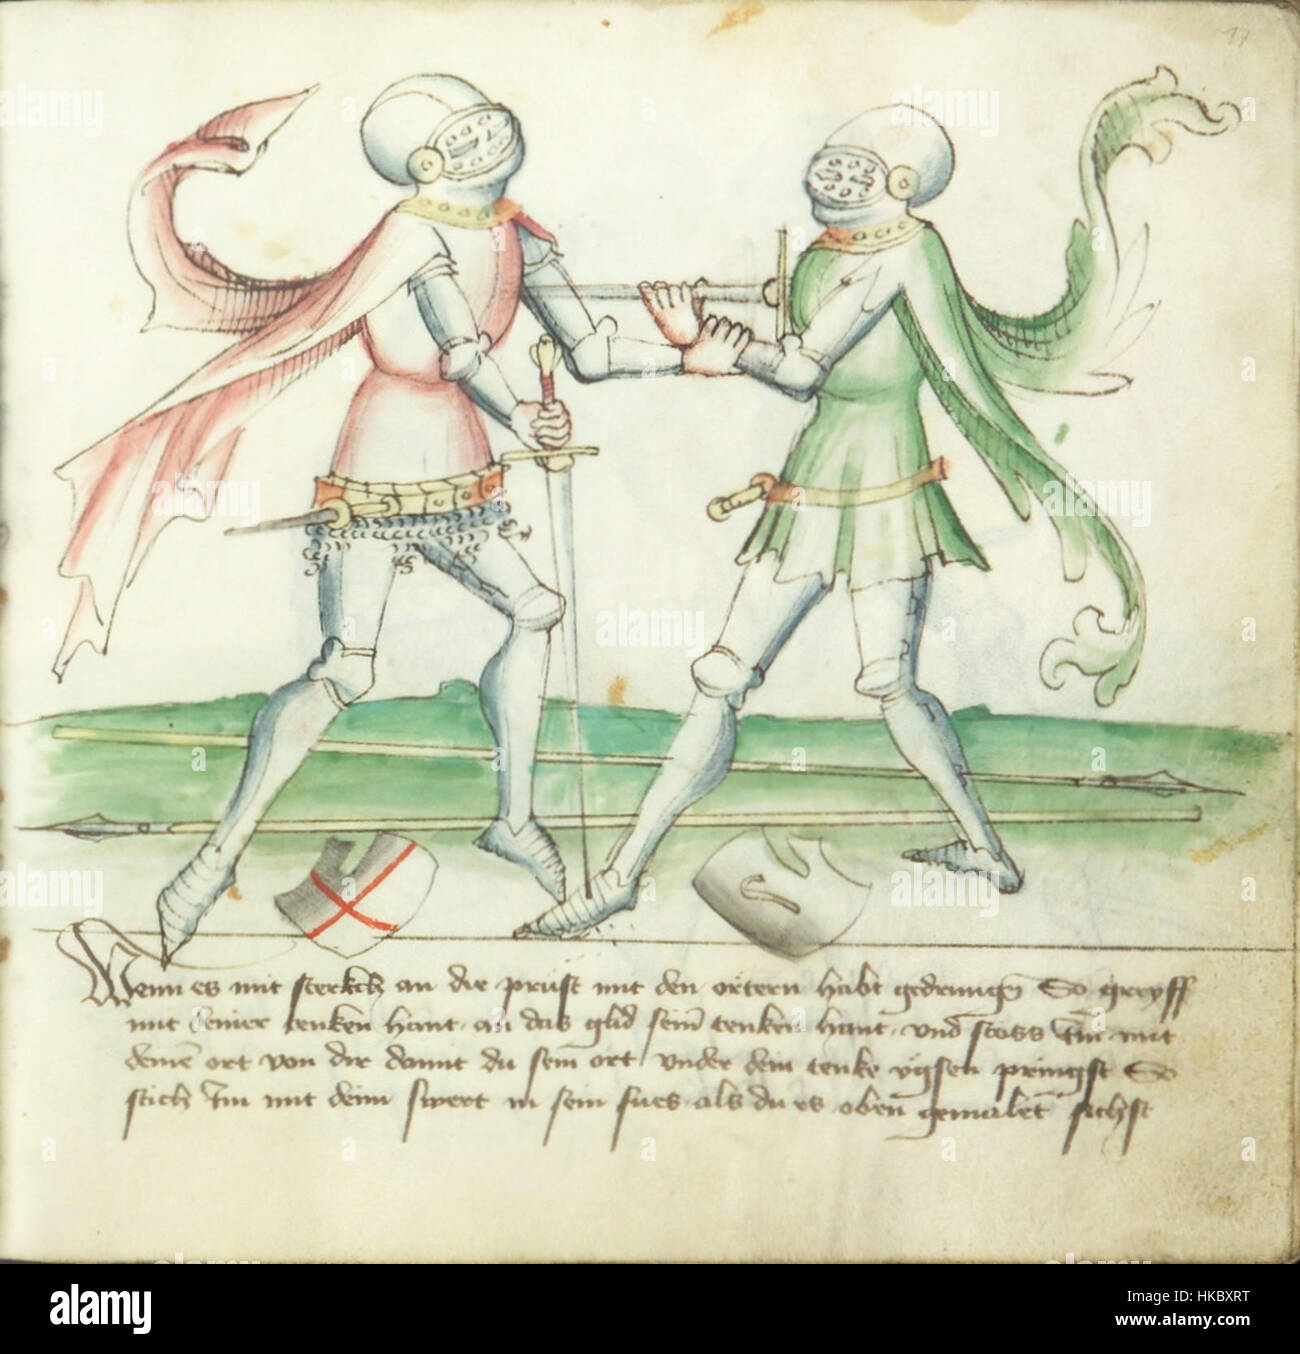 17
Wenn es mit sterckh an die prüst mit den örtern habt gedrungen So greyff
mit deiner tenken hant an das glid seiner tenken hant und stoss Im mit
deinem ort von dir damit du sein ort under dein tenke ügsen pringst So
stich Im mit deim swert in sein fues als du es oben gemalet sichst
alamy
Image ID: HKBXRT
www.alamy.com